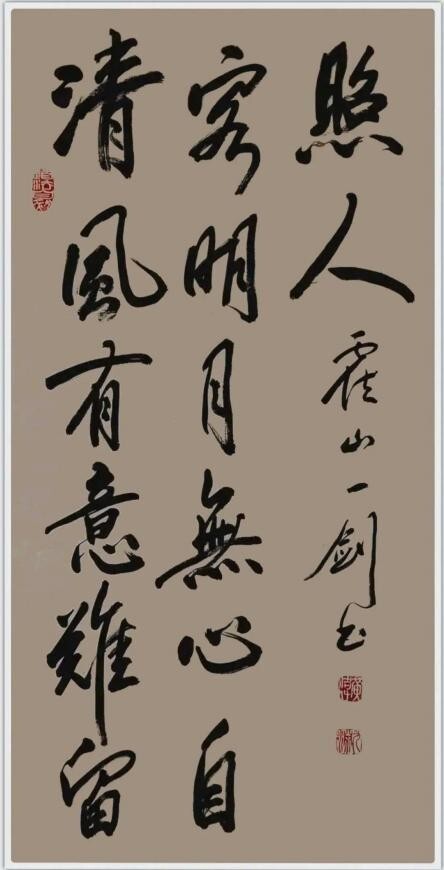 清風有意難留
客明月無心自
照人
霍山一剑书